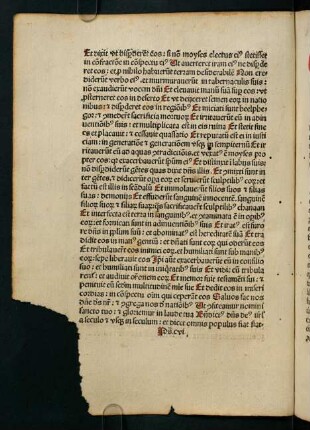 Et dixit vt disperderet eos: si nõ moyses electus eiꝰ stetisset
in cõfractiõe in cõspectu eiꝰ Ut auerteret iram eiꝰ ne disper
deret eos: et p nihilo habuerũt terram desiderabilẽ Non cre
diderũt verbo eiꝰ et murmurauerũt in tabernaculis suis:
non exaudierũt vocem dñi Et eleuauit manũ suã sup eos: vt
psterneret eos in deserto Et vt deijceret semen eoꝝ in natio
nibus: et dispgeret eos in regiõibꝰ Et iniciati sunt beelphe
gor: et comederũt sacrificia mortuoꝝ Et irritauerũt eũ in ad
inuentiõibꝰ suis: et multiplicata est in eis ruina Et stetit fine
es et placauit: et cessauit quassatio Et reputatũ est ei in iusti
ciam: in generatiõem et generationem vsqꝫ in sempiternũ Et ir
ritauerũt eũ ad aquas ꝯtradictiõis: et vexatꝰ ẽ moyses pro
pter eos: qꝛ exacerbauerũt spũm eiꝰ Et distinxit in labijs suis:
nõ disperdiderũt gẽtes quas dixit dñs illis Et cõmixti sunt in
ter gẽtes: et didicerũt opa eoꝝ et seruierũt sculptilibꝰ eoꝝ: et
factũ est illis in scãdalũ Et immolauerũt filios suos et filias
suas: demonijs Et effuderũt sanguinẽ innocentẽ: sanguinẽ
filioꝝ suoꝝ et filiaꝝ suaꝝ: quas sacrificauerũt sculptilibꝰ chanaan
Et interfecta est terra in sanguinibꝰ: et ꝯtaminata ẽ in opibꝰ
eoꝝ: et fornicati sunt in adinuentiõibꝰ suis Et iratꝰ est furo
re dñs in pplm suũ: et abominatꝰ est hereditatẽ suã Et tra
didit eos in manꝰ gentiũ: et dñati sunt eoꝝ qui oderũt eos
Et tribulauerũt eos inimici eoꝝ: et humiliati sunt sub manibꝰ
eoꝝ: sepe liberauit eos Ipsi aũt exacerbauerũt eũ in consilio
suo: et humiliati sunt in iniqtatibꝰ suis Et vidit cũ tribula
rent: et audiuit orõnem eoꝝ Et memor fuit testamẽti sui: et
penituit eũ scdm multitudinẽ mie sue Et dedit eos in miseri
cordias: in cõspectu oĩm qui ceperãt eos Saluos fac nos
dñe deꝰ nr̃: et ꝯgrega nos de nationibꝰ Ut ꝯfiteamur nomini
sancto tuo: et gloriemur in laude tua Bñdictꝰ dñs deꝰ isrl
a seculo et vsqꝫ in seculum: et dicet omnis populus fiat fiat